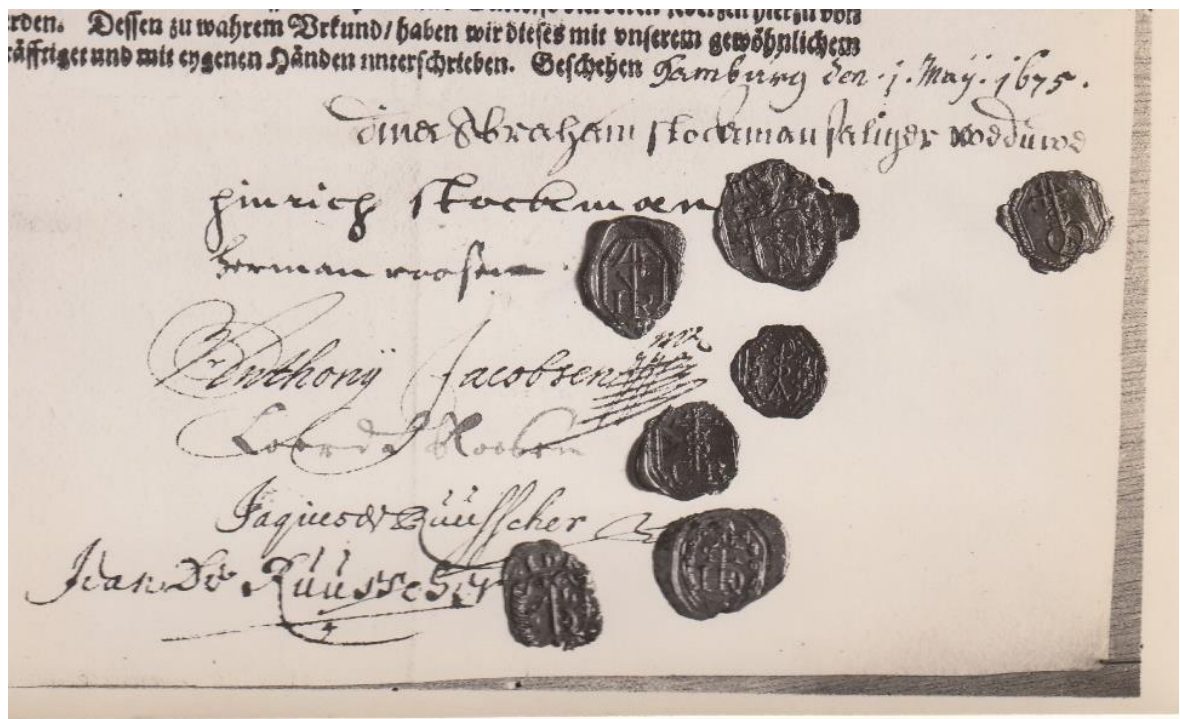 rden. Dessen zu wahrem Vrkund/ haben wir dieses mit vnserem gewöhnlichem
äfftiget und mit eygenen Händen unterschrieben. Geschehen Hamburg den 1. May. 1675.
Abraham stockman saliger weduwe
hinrich stockman
herman roosen
Anthonÿ Jacobsen
Coord Roosen
Jaques de Rüüsscher
Jean De Rüüsscher